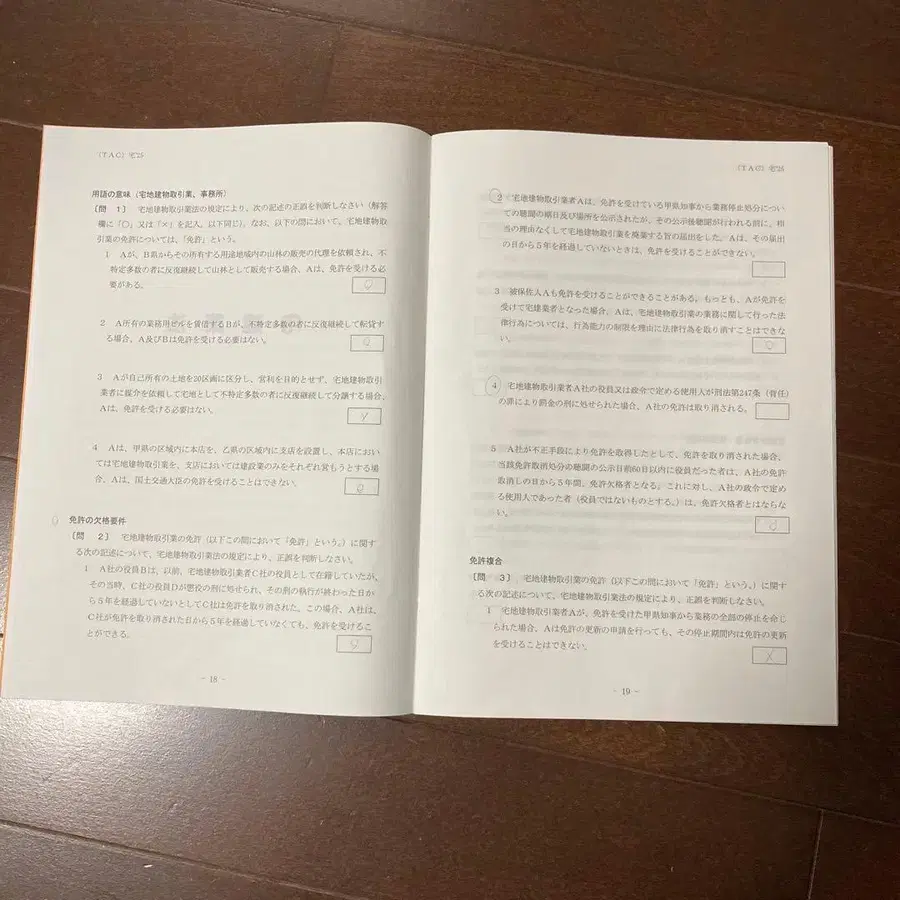 〔TAC〕宅'25
用語の意味（宅地建物取引業、事務所）
〔問 1〕 宅地建物取引業法の規定により、次の記述の正誤を判断しなさい（解答
欄に「○」又は「×」を記入。以下同じ）。なお、以下の問において、宅地建物取
引業の免許については、「免許」という。
1 Aが、B県からその所有する用途地域内の山林の販売の代理を依頼され、不
特定多数の者に反復継続して山林として販売する場合、Aは、免許を受ける必
要がある。
○
2 A所有の業務用ビルを賃借するBが、不特定多数の者に反復継続して転貸す
る場合、A及びBは免許を受ける必要はない。
○
3 Aが自己所有の土地を20区画に区分し、営利を目的とせず、宅地建物取引
業者に媒介を依頼して宅地として不特定多数の者に反復継続して分譲する場合、
Aは、免許を受ける必要はない。
×
4 Aは、甲県の区域内に本店を、乙県の区域内に支店を設置し、本店におい
ては宅地建物取引業を、支店においては建設業のみをそれぞれ営もうとする場
合、Aは、国土交通大臣の免許を受けることはできない。
○
免許の欠格要件
〔問 2〕 宅地建物取引業の免許（以下この問において「免許」という。）に関す
る次の記述について、宅地建物取引業法の規定により、正誤を判断しなさい。
1 A社の役員Bは、以前、宅地建物取引業者C社の役員として在籍していたが、
その当時、C社の役員Dが懲役の刑に処せられ、その刑の執行が終わった日か
ら5年を経過していないとしてC社は免許を取り消された。この場合、A社は、
C社が免許を取り消された日から5年を経過していなくても、免許を受けるこ
とができる。
○
- 18 -
〔TAC〕宅'25
2 宅地建物取引業者Aは、免許を受けている甲県知事から業務停止処分につい
ての聴聞の期日及び場所を公示されたが、その公示後聴聞が行われる前に、相
当の理由なくして宅地建物取引業を廃業する旨の届出をした。Aは、その届出
の日から5年を経過していないときは、免許を受けることができない。
3 被保佐人Aも免許を受けることができることがある。もっとも、Aが免許を
受けて宅建業者となった場合、Aは、宅地建物取引業の業務に関して行った法
律行為については、行為能力の制限を理由に法律行為を取り消すことはできな
い。
○
4 宅地建物取引業者A社の役員又は政令で定める使用人が刑法第247条（背任）
の罪により罰金の刑に処せられた場合、A社の免許は取り消される。
5 A社が不正手段により免許を取得したとして、免許を取り消された場合、
当該免許取消処分の聴聞の公示日前60日以内に役員だった者は、A社の免許
取消しの日から5年間、免許欠格者となる。これに対し、A社の政令で定め
る使用人であった者（役員ではないものとする。）は、免許欠格者とはならな
い。
免許複合
〔問 3〕 宅地建物取引業の免許（以下この問において「免許」という。）に関す
る次の記述について、宅地建物取引業法の規定により、正誤を判断しなさい。
1 宅地建物取引業者Aが、免許を受けた甲県知事から業務の全部の停止を命じ
られた場合、Aは免許の更新の申請を行っても、その停止期間内は免許の更新
を受けることはできない。
×
- 19 -